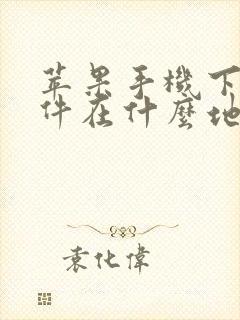 苹果手機下
件在什麼地
袁化偉